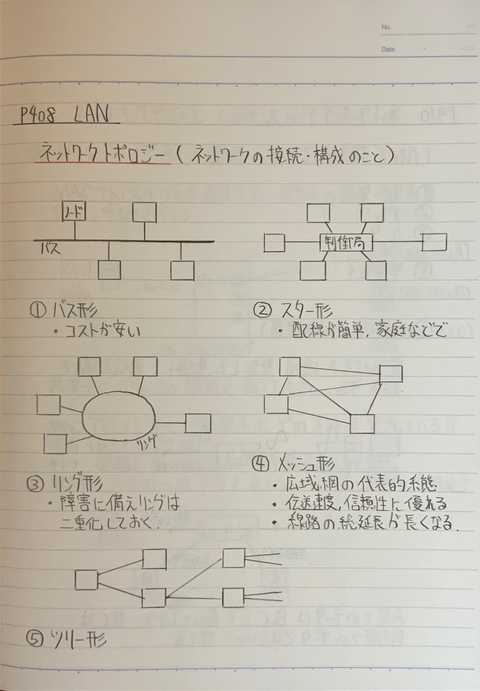 No.
Date
P408 LAN
ネットワークトポロジー(ネットワークの接続・構成のこと)
ノード
バス
制御局
① バス形
・コストが安い
② スター形
・配線が簡単、家庭などで
リング
③ リング形
・障害に備えリングは
二重化しておく.
④ メッシュ形
・広域網の代表的形態
・伝送速度,信頼性に優れる
・線路の総延長が長くなる.
⑤ ツリー形